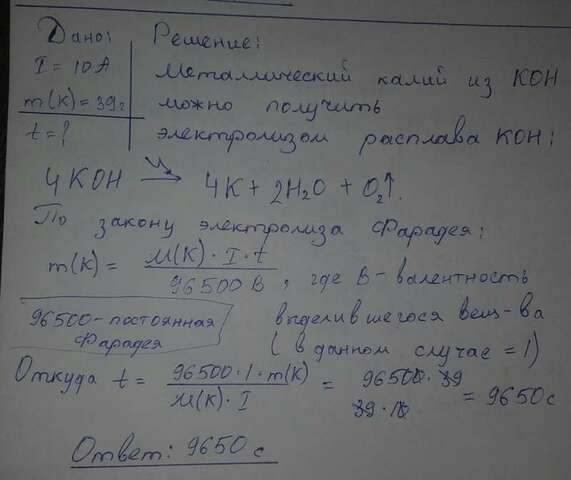 Дано:
I = 10 А
m(K) = 39 г
t = ?
Решение:
Металлический калий из КОН
можно получить
электролизом расплава КОН:
4 KOH → 4K + 2H₂O + O₂↑.
По закону электролиза Фарадея:
m(K) = M(K) · I · t / 96500 B, где B - валентность
выделившегося вещ-ва
(в данном случае = 1)
96500 - постоянная
Фарадея
Откуда t = 96500 · 1 · m(K) / M(K) · I = 96500 · 39 / 39 · 10 = 9650 с
Ответ: 9650 с